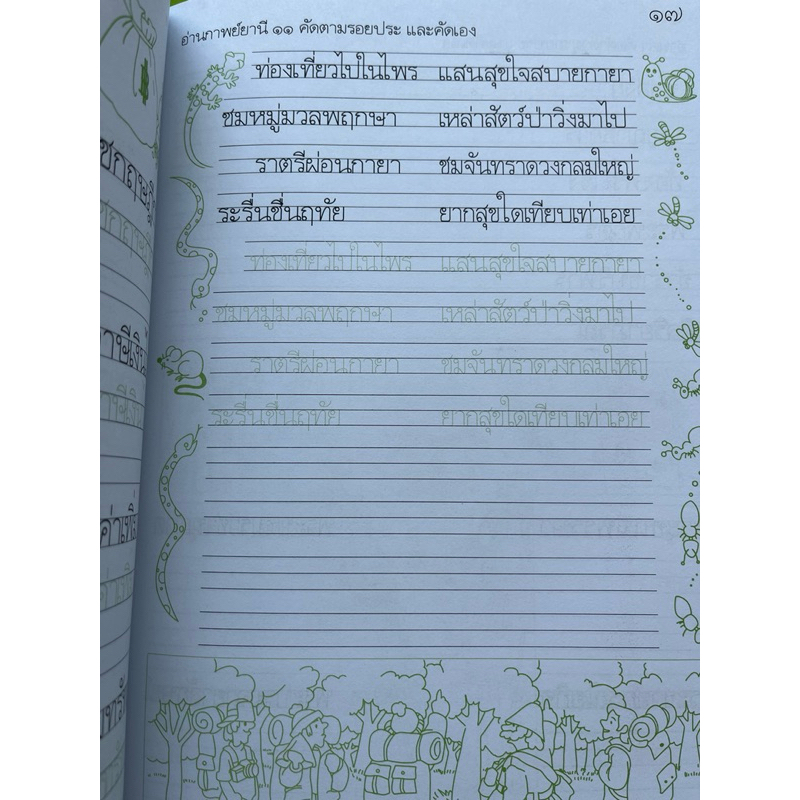 ๑๗
อ่านกาพย์ยานี ๑๑ คัดตามรอยประ และคัดเอง
ท่องเที่ยวไปในไพร แสนสุขใจสบายกายา
ชมหมู่มวลพฤกษา เหล่าสัตว์ป่าวิ่งมาไป
ราตรีผ่อนกายา ชมจันทราดวงกลมใหญ่
ระรื่นชื่นฤทัย ยากสุขใดเทียบเท่าเอย
ท่องเที่ยวไปในไพร แสนสุขใจสบายกายา
ชมหมู่มวลพฤกษา เหล่าสัตว์ป่าวิ่งมาไป
ราตรีผ่อนกายา ชมจันทราดวงกลมใหญ่
ระรื่นชื่นฤทัย ยากสุขใดเทียบเท่าเอย